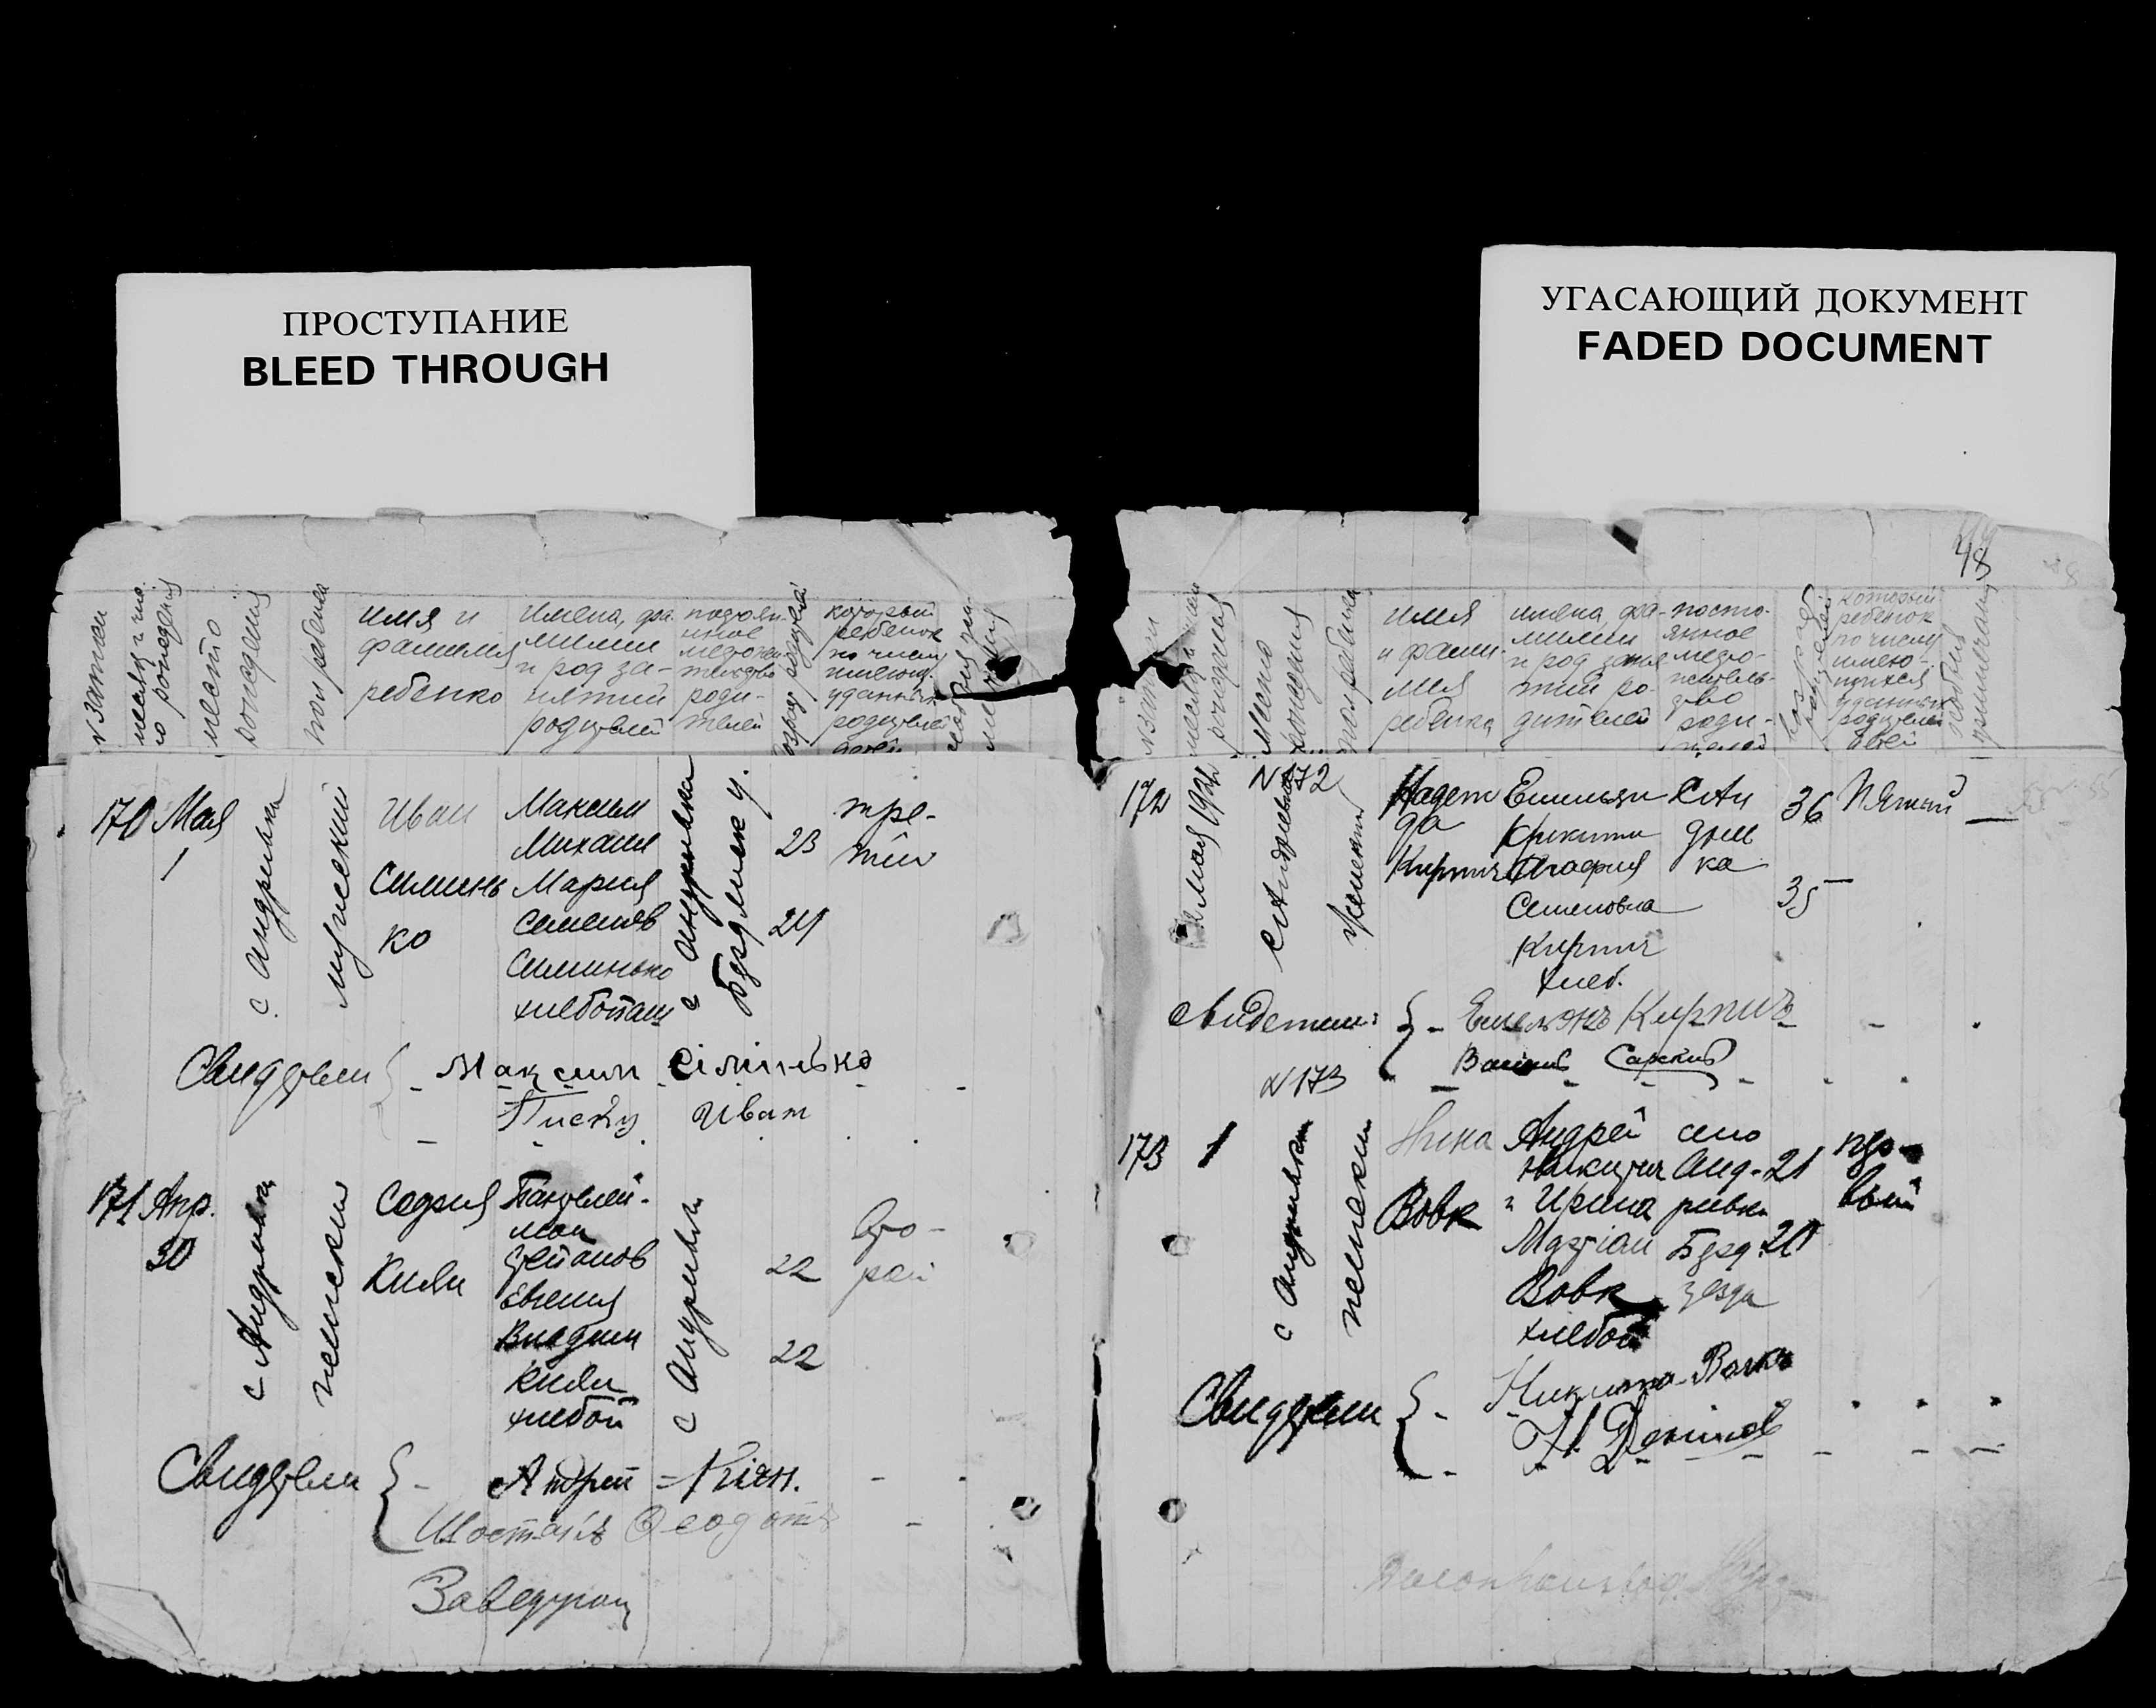 ПРОСТУПАНИЕ
BLEED THROUGH
УГАСАЮЩИЙ ДОКУМЕНТ
FADED DOCUMENT
48
№ записи
месяц и число рождения
место рождения
пол ребенка
имя и
фамилия
ребенка
имена, фа-
милии
и род за-
нятий
родителей
постоян-
ное
место жи-
тельство
роди-
телей
возраст родителей
который
ребенок
по числу
имеющ.
у данных
родителей
детей
170 Мая
1
с Андриевка
мужеский
Иван
Силинь
ко
Максим
Михаил
Мария
Семенов
Силинько
хлебопаш
с Андриевка
Бердянск у.
23
24
тре-
тий
Свидетели
Максим Сілінько
Иван
171 Апр.
30
с Андриевка
женский
София
Киян
Пантелей-
мон
Степанов
Евгения
Владим
Киян
хлебоп
с Андриевка
22
22
Вто-
рой
Свидетели
Андрей Кіян.
Шостакъ Феодотъ
Заведующ
№ записи
рождения
Место рождения
пол ребенка
имя
и фами-
лия
ребенка
имена, фа-
милии
и род заня
тий ро-
дителей
посто-
янное
место-
жительь-
ство
роди-
телей
возраст родителей
который
ребенок
по числу
имею-
щихся
у данных
родителей
детей
особыя примечания
№172
172
1 Мая 192
с Андриевка
женский
Надеж
да
Кирпич
Емельян
Никити
Агафия
Семеновна
Кирпич
хлеб.
с Ан
дриев
ка
36
35
Пятый
Свидетели:
Емельянъ Кирпичъ
№173
173
1
с Андриевка
женский
Нина
Вовк
Андрей
Никитич
и Ирина
Вовк
хлебоп
село
Анд-
риевк
Берд.
уезда
21
20
пер-
вый
Свидетели
Никита